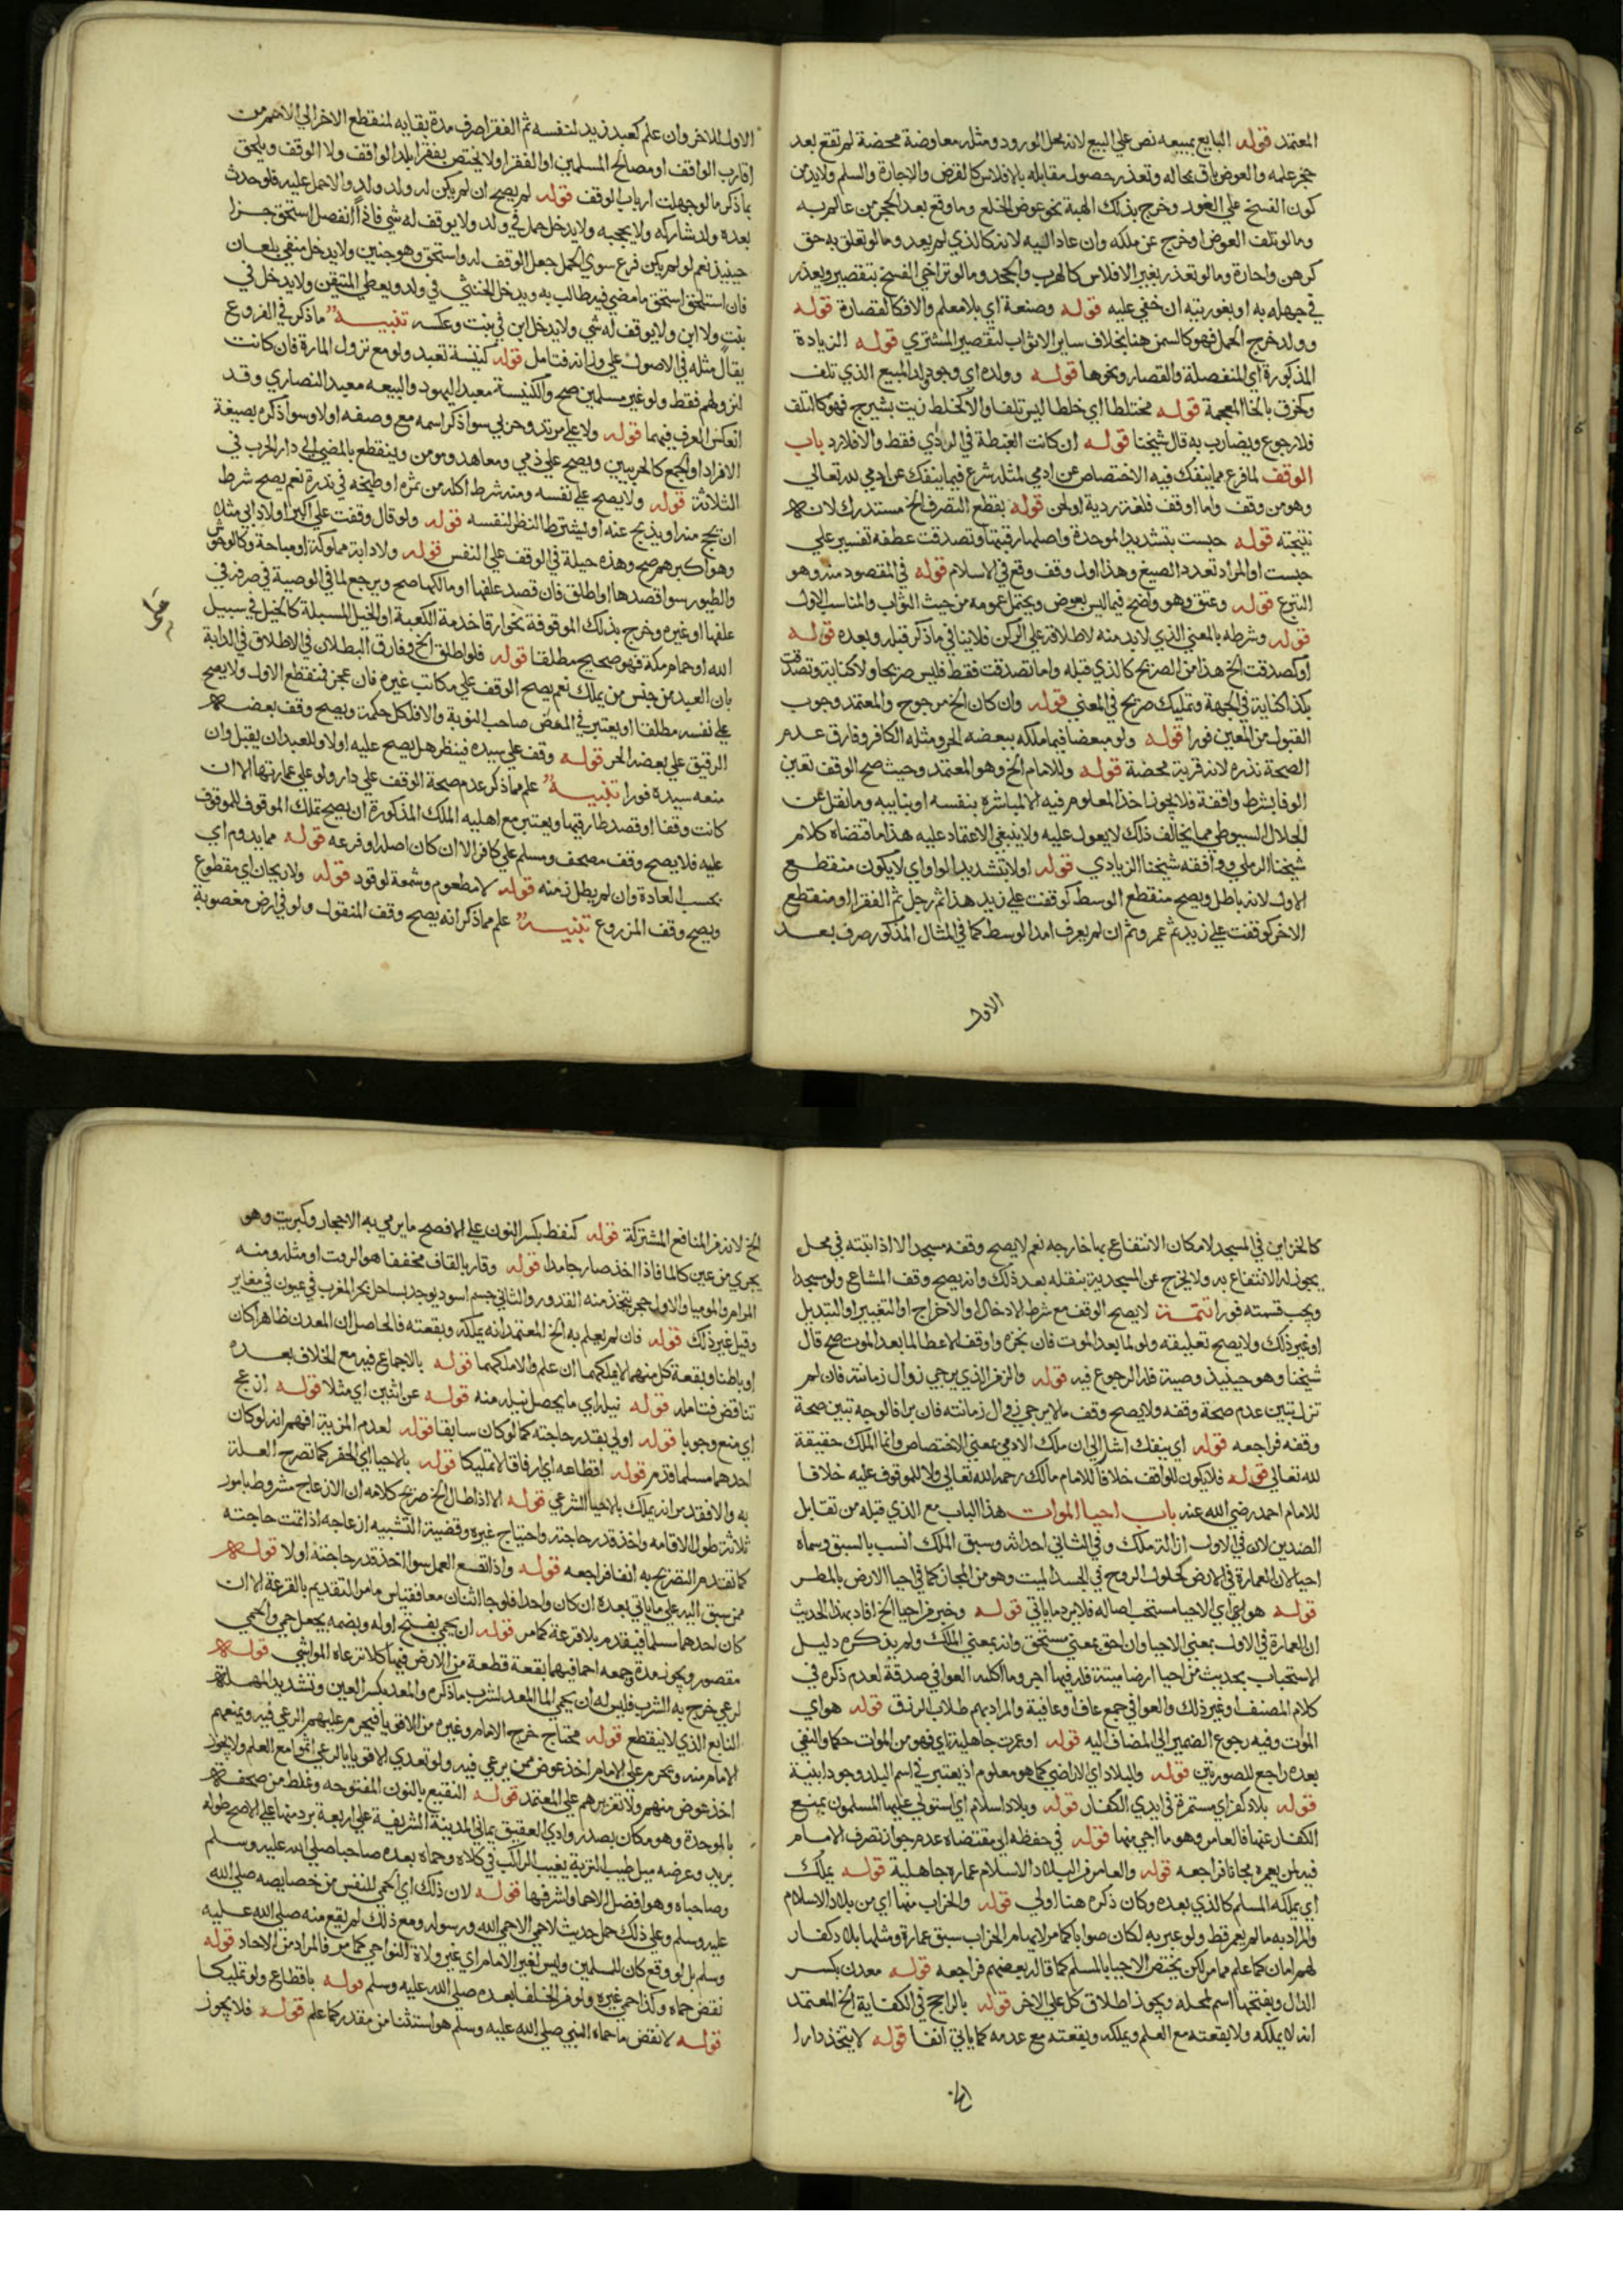 المعتمد قوله البايع بمبيعه نص علي البيع لانه محل الورود ومثله معاوضة محضة لم تقع بعد
حجر علمه والعوض باق بحاله وتعذر حصول مقابله بالافلاس كالقرض والاجارة والسلم ولابد من
كون الفسخ علي الفور وخرج بذلك الهبة نحو عوض الخلع وما وقع بعد الحجر من عالم به
وما لو تلف العوض او خرج عن ملكه وان عاد اليه لانه كالذي لم يعد وما لو تعلق به حق
كرهن واجارة وما لو تعذر بغير الافلاس كالهرب والجحد وما لو تراخي الفسخ بتقصير ويعذر
في جهله به او بفوريته ان خفي عليه قوله وصنعة اي بلا معلم والا فكالقصارة قوله
وولد خرج الحمل فهو كالسمن هنا بخلاف ساير الابواب لتقصير المشتري قوله الزيادة
المذكورة اي المنفصلة والقصار ونحوها قوله وولده اي وجوبا لد المبيع الذي تلف
وحرق بالخا المعجمة قوله مختلطا اي خلطا ليس تلفا والا كخلط زيت بشيرج فهو كالتلف
فلا رجوع ويضارب به قال شيخنا قوله ان كانت الغبطة في الرد اي فقط والا فلا رد باب
الوقف لما فرغ مما ينفك فيه الاختصاص عن ادمي لمثله شرع فيما ينفك عن ادمي لله تعالي
وهو من وقف واما اوقف فلغة ردية او لحن قوله بقطع التصرف الخ مستدرك لانه
نتيجته قوله حبست بتشديد الموحدة واصلها رقبتها وتصدقت عطفه تفسير علي
حبست او المراد تعدد الصيغ وهذا اول وقف وقع في الاسلام قوله في المقصود منه وهو
التبرع قوله وعتق وهو واضح فيما ليس بعوض ويحتمل عمومه من حيث الثواب والمناسب الاول
قوله وشرطه بالمعني الذي لابد منه لاطلاقه علي الركن فلا ينافي ما ذكر قبله وبعده قوله
او كصدقت الخ هذا من الصريح كالذي قبله واما تصدقت فقط فليس صريحا ولا كناية وتصدقت
بكذا كناية في الجهة وتمليك صريح في المعني قوله وان كان الخ مرجوح والمعتمد وجوب
القبول من المعين فورا قوله ولو مبعضا فيما ملكه ببعضه الحر ومثله الكافر وفارق عدم
الصحة نذره لانه قربة محضة قوله وللامام الخ وهو المعتمد وحيث صح الوقف تعين
الوفا بشرط واقفة فلا يجوز اخذ المعلوم فيه الا لمباشره بنفسه او بنايبه وما نقل عن
الجلال السيوطي مما يخالف ذلك لا يعول عليه ولا ينبغي الاعتقاد عليه هذا ما اقتضاه كلام
شيخنا الرملي ووافقه شيخنا الزيادي قوله اولا بتشديد الواو اي لا يكون منقطع
الاول لانه باطل ويصح منقطع الوسط كوقفت علي زيد هذا ثم رجل ثم الفقرا او منقطع
الاخر كوقفت علي زيد ثم عمر وثم ان لم يعرف امد الوسط كما في المثال المذكور صرف بعد
الاول
الاول للاخر وان علم كعبد زيد لنفسه ثم الفقرا صرف مدة بقايه لمنقطع الاخر الي الاهم من
اقارب الواقف او مصالح المسلمين او الفقرا ولا يختص بفقرا بلد الواقف ولا الوقف ويلحق
بما ذكر ما لو جهلت ارباب الوقف قوله لم يصح ان لم يكن له ولد ولد والا حمل عليه فلو حدث
بعده ولد شاركه ولا يحجبه ولا يدخل حمل في ولد ولا يوقف له شي فاذا انفصل استحق جزا
حينيذ نعم لو لم يكن فرع سوي الحمل جعل الوقف له واستحق وهو جنين ولا يدخل منفي بلعان
فان استلحق استحق ما مضي فيطالب به ويدخل الخنثي في ولد ويعطي المتيقن ولا يدخل في
بنت ولا ابن ولا يوقف له شي ولا يدخل ابن في بنت وعكسه تنبيه ما ذكر في الفروع
يقال مثله في الاصول علي وزانه فتامل قوله كنيسة تعبد ولو مع نزول المارة فان كانت
لنزولهم فقط ولو غير مسلمين صح والكنيسة معبد اليهود والبيعه معبد النصاري وقد
انعكس العرف فيهما قوله ولا علي مرتد وحربي سوا ذكر اسمه مع وصفه اولا وسوا ذكره بصيغة
الافراد او الجمع كالحربيين ويصح علي ذمي ومعاهد ومومن وينقطع بالمضي الي دار الحرب في
الثلاثة قوله ولا يصح علي نفسه ومنه شرط اكله من ثمره او طبخه في قدره نعم يصح شرط
ان يحج منه او يذبح عنه او يشترط النظر لنفسه قوله ولو قال وقفت علي اكبر اولاد ابي مثلا
وهو اكبرهم صح وهذه حيلة في الوقف علي النفس قوله ولا دابة مملوكة او مباحة وكالوحوش
والطيور سوا قصدها او اطلق فان قصد علفها او مالكها صح ويرجع لما في الوصية في صرفه في
علفها او غيره وخرج بذلك الموقوفة نحوارقا خدمة الكعبة او الخيل المسبلة كالخيل في سبيل
الله او حمام مكة فهو صحيح مطلقا قوله فلو اطلق الخ وفارق البطلان في الاطلاق في الدابة
بان العبد من جنس من يملك نعم يصح الوقف علي مكاتب غيره فان عجز فمنقطع الاول ولا يصح
علي نفسه مطلقا او يعتبر في المبعض صاحب النوبة والا فلكل حكمه ويصح وقف بعضه
الرقيق علي بعضه الحر قوله وقف علي سيده فينظر هل يصح عليه اولا وللعبد ان يقبل وان
منعه سيده فورا تنبيه علم مما ذكر عدم صحة الوقف علي دار ولو علي عمارتها الا ان
كانت وقفا او قصد طارقيها ويعتبر مع اهليه الملك المذكورة ان يصح تملك الموقوف للموقوف
عليه فلا يصح وقف مصحف ومسلم علي كافر الا ان كان اصله او فرعه قوله مما يدوم اي
بحسب العادة وان لم يطل زمنه قوله لا مطعوم وشمعة لوقود قوله ولا ريحان اي مقطوع
ويصح وقف المزروع تنبيه علم مما ذكر انه يصح وقف المنقول ولو في ارض مغصوبة
كالخزاين في المسجد لامكان الانتفاع بها خارجه نعم لا يصح وقفه مسجدا الا اذا اثبته في محل
يجوز له الانتفاع به ولا يخرج عن المسجدية بنقله بعد ذلك وانه يصح وقف المشاع ولو مسجدا
ويجب قسمته فورا تتمة لا يصح الوقف مع شرط الادخال او الاخراج او التغيير او التبديل
او غير ذلك ولا يصح تعليقه ولو لما بعد الموت فان نجزه واوقف الاعطا لما بعد الموت صح قال
شيخنا وهو حينيذ وصية فله الرجوع فيه قوله والزمن الذي يرجي زوال زمانته فان لم
تزل تبين عدم صحة وقفه ولا يصح وقف ما لا يرجي زوال زمانته فان برا فالوجه تبين صحة
وقفه فراجعه قوله اي ينفك اشار الي ان ملك الادمي بمعني الاختصاص وانما الملك حقيقة
لله تعالي قوله فلا يكون للواقف خلافا للامام مالك رحمه الله تعالي ولا للموقوف عليه خلافا
للامام احمد رضي الله عنه باب احيا الموات هذا الباب مع الذي قبله من تقابل
الضدين لانه في الاول ازالة ملك وفي الثاني احداثه وسبق الملك انسب بالسبق وسماه
احيا لان العمارة في الارض كحلول الروح في الجسد الميت وهو من المجاز كما في احيا الارض بالمطر
قوله هو اي الاحيا مستحب اصاله فلا يرد ما ياتي قوله وخبر من احيا الخ افاد بهذا الحديث
ان العمارة في الاول بمعني الاحيا وان احق بمعني مستحق وانه بمعني الملك ولم يذكره دليل
الاستحباب بحديث من احيا ارضا ميتة فله فيها اجر وما اكله العوافي صدقة لعدم ذكره في
كلام المصنف او غير ذلك والعوافي جمع عاف او عافية والمراد بهم طلاب الرزق قوله هو اي
الموات وفيه رجوع الضمير الي المضاف اليه قوله او عمرت جاهلية اي فهو من الموات حكما والنفي
بعده راجع للصورتين قوله والبلاد اي الاراضي كما هو معلوم اذ يعتبر في اسم البلد وجود ابنية
قوله بلاد كفر اي مستمرة في ايدي الكفار قوله وبلاد اسلام اي استولي عليها المسلمون بمنع
الكفار عنها فالعامر وهو ما احي منها قوله في حفظه الي مقتضاه عدم جواز تصرف الامام
فيه لمن يعمره مجانا فراجعه قوله والعامر في البلاد الاسلام عمارة جاهلية قوله يملك
اي يملكه المسلم كالذي بعده وكان ذكره هنا اولي قوله والخراب منها اي من بلاد الاسلام
والمراد به ما لم يعمر قط ولو عبر به لكان صوابا كما مر لايهام الخراب سبق عمارة ومثلها بلاد كفار
لهم امان كما علم مما مر لكن يختص الاحيا بالمسلم كما قاله بعضهم فراجعه قوله معدن بكسر
الدال وبفتحها اسم لمحله ويجوز اطلاق كل علي الاخر قوله بالراجح في الكفاية الخ المعتمد
انه لا يملكه ولا بقعته مع العلم ويملكه وبقعته مع عدمه كما ياتي انفا قوله لا يتخذ دارا
الخ
الخ لانه من المنافع المشتركة قوله كنفط بكسر النون علي الافصح ما يرمي به الاحجار وكبريت وهو
يجري من عين كالما فاذا اخذ صار جامدا قوله وقار بالقاف مخففا هو الزفت او مثله ومنه
البرام والموميا والاول حجر يتخذ منه القدور والثاني جسم اسود يوجد بساحل بحر المغرب في عيون في مغاير
وقيل غير ذلك قوله فان لم يعلم به الخ المعتمد انه يملكه وبقعته فالحاصل ان المعدن ظاهرا كان
او باطنا وبقعة كل منهما لا يملكهما ان علم والا ملكهما قوله بالاجماع فيه مع الخلاف بعده
تناقض فتامله قوله نيله اي ما يحصل نيله منه قوله عن اثنين اي مثلا قوله ازعج
اي منع وجوبا قوله اولي بقدر حاجته كما لو كان سابقا قوله لعدم المزية افهم انه لو كان
احدهما مسلما قدم قوله اقطاعه اي ارفاقا لا تمليكا قوله بالاحيا اي الحفر كما تصرح العلة
به والا فقد مر انه يملك بالاحيا الشرعي قوله الا اذا طال الخ صريح كلامه ان الازعاج مشروط بامور
ثلاثة طول الاقامه واخذ قدر حاجته واحتياج غيره وقضية التشبيه ازعاجه اذا تمت حاجته
كما تقدم التصريح به انفا فراجعه قوله واذا اتسع العمل سوا اخذ قدر حاجته اولا قوله
ممن سبق اليه علي ما ياتي بعده ان كان واحدا فلو جا اثنان معا فقياس ما مر التقديم بالقرعة الا ان
كان احدهما مسلما فيقدم بلا قرعة كما مر قوله ان يحمي بفتح اوله وبضمه يجعل حمي والحمي
مقصور ويجوز مده وجمعه احما فيهما بقعة قطعة من الارض فيها كلا ترعاه المواشي قوله
لرعي خرج به الشرب فليس له ان يحمي الما المعد لشرب ما ذكره والمعد بكسر العين وتشديد المهملة
النابع الذي لا ينقطع قوله محتاج خرج الامام وغيره من الاقويا فيحرم عليهم الرعي فيه ويمنعهم
الامام منه ويحرم علي الامام اخذ عوض ممن يرعي فيه ولو تعدي الاقويا بالرعي اثموا مع العلم ولا يجوز
اخذ عوض منهم ولا تعزيرهم علي المعتمد قوله النقيع بالنون المفتوحه وغلط من صحفه
بالموحدة وهو مكان بصدر وادي العقيق يماني المدينة الشريفة علي اربعة برد منها علي الاصح طوله
بريد وعرضه ميل طيب التربة يغيب الراكب في كلاه وحماه بعده صاحبا صلي الله عليه وسلم
وصاحباه وهو افضل الاحما واشرفها قوله لان ذلك اي الحمي للنفس من خصايصه صلي الله
عليه وسلم وعلي ذلك حمل حديث لا حمي الا حمي الله ورسوله ومع ذلك لم يقع منه صلي الله عليه
وسلم بل لو وقع كان للمسلمين وليس لغير الامام اي غير ولاة النواحي كما مر فالمراد من الاحاد قوله
نقض حماه وكذا حمي غيره ولو من الخلفا بعده صلي الله عليه وسلم قوله باقطاع ولو تمليكا
قوله لا نقض ما حماه النبي صلي الله عليه وسلم هو استثنا من مقدر كما علم قوله فلا يجوز